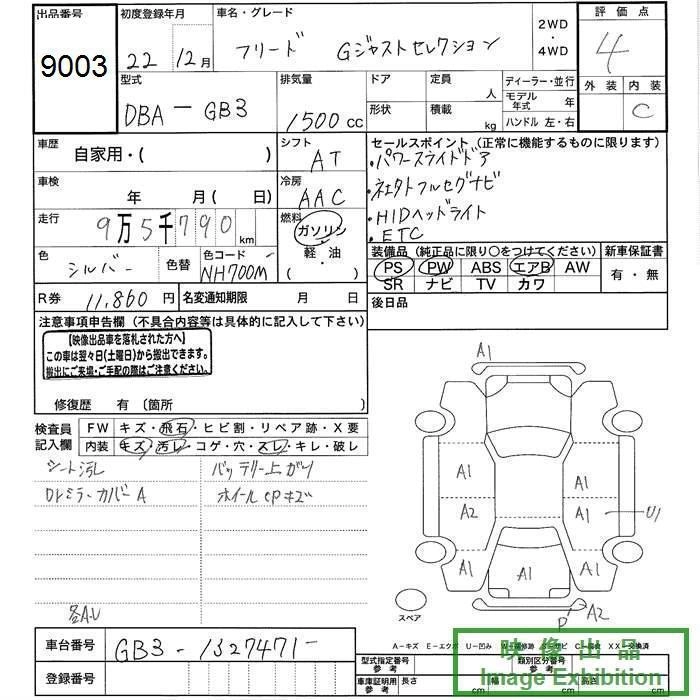 出品番号 初度登録年月 車名・グレード 2WD・4WD 評価点
9003 22 12月 フリード Gジャストセレクション 4
型式 排気量 ドア 定員 人 ディーラー・並行 外装 内装
DBA - GB3 1500cc 形状 積載 kg モデル年式 年 C
ハンドル 左・右
車歴 自家用・( ) シフト AT セールスポイント (正常に機能するものに限ります)
・パワースライドドア
車検 年 月( 日) 冷房 AAC ・社外フルセグナビ
走行 9万5千790km 燃料 ガソリン・軽油・( ) ・HIDヘッドライト
・ETC
色 シルバー 色替 色コード NH700M 装備品 (純正品に限り○をつけてください) 新車保証書
PS PW ABS エアB AW 有・無
SR ナビ TV カワ
R券 11,860円 名変通知期限 月 日 後日品
注意事項申告欄 (不具合内容等は具体的に記入して下さい)
【映像出品車を落札された方へ】
この車は翌々日(土曜日)から搬出できます。
搬出にご来場・ご手配の際はご注意ください。
修復歴 有 (箇所 )
検査員記入欄 FW キズ・飛石・ヒビ割・リペア跡・X要
内装 キズ・汚レ・コゲ・穴・スレ・キレ・破レ
シート汚レ バッテリー上がり
Dドミラーカバー A ホイールcpキズ
各A.U
A1
A1 A1
A2 A1 U1
A1 A1 A1
スペア P A2
A-キズ E-エクボ U-凹み
車台番号 GB3-1327471-
登録番号
型式指定番号 参考 類別区分番号 参考
車庫証明用 参考 長さ cm 幅 cm 高さ cm
映像出品
Image Exhibition